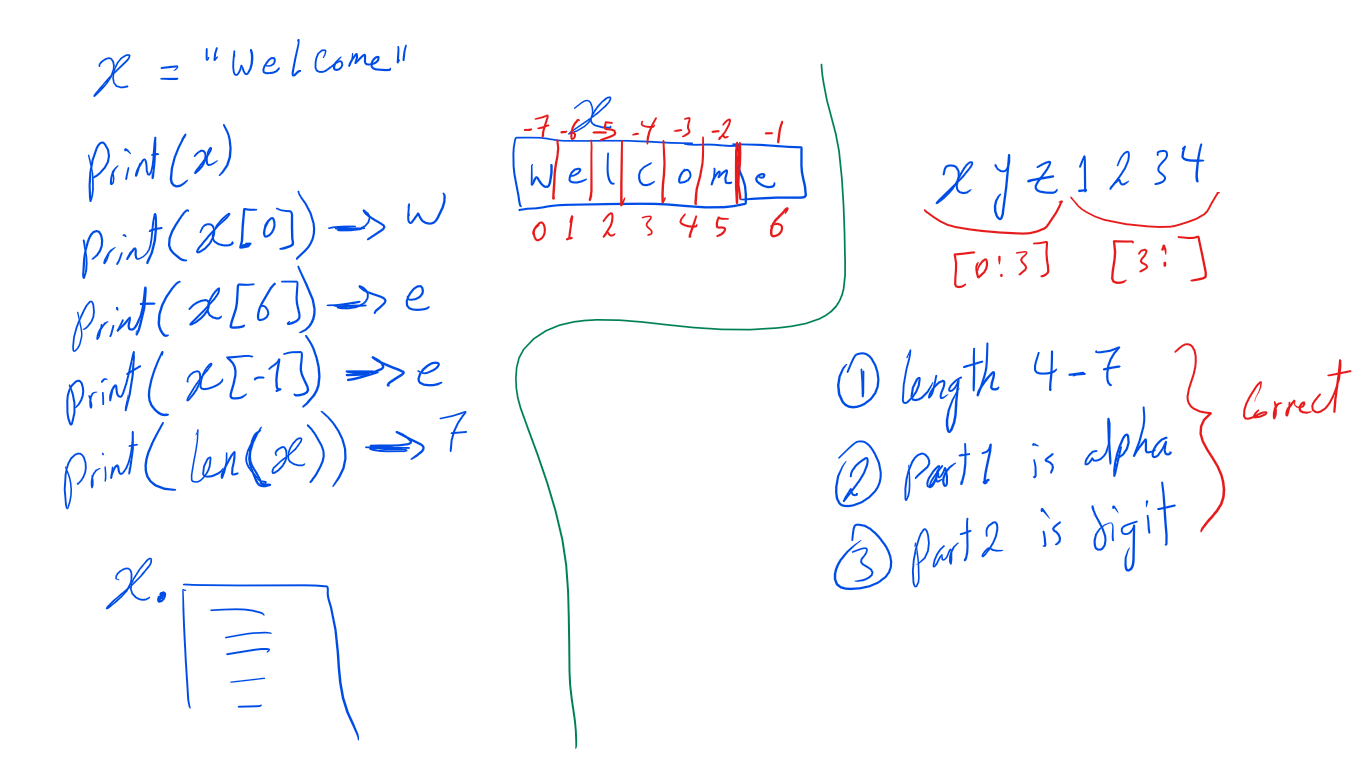 x = "Welcome"
Print(x)
Print(x[0]) → W
Print(x[6]) → e
Print(x[-1]) → e
Print(len(x)) → 7
x.
x
-7 -6 -5 -4 -3 -2 -1
W e l c o m e
0 1 2 3 4 5 6
x y z 1 2 3 4
[0:3] [3:]
① length 4-7
② Part1 is alpha
③ Part2 is digit
Correct